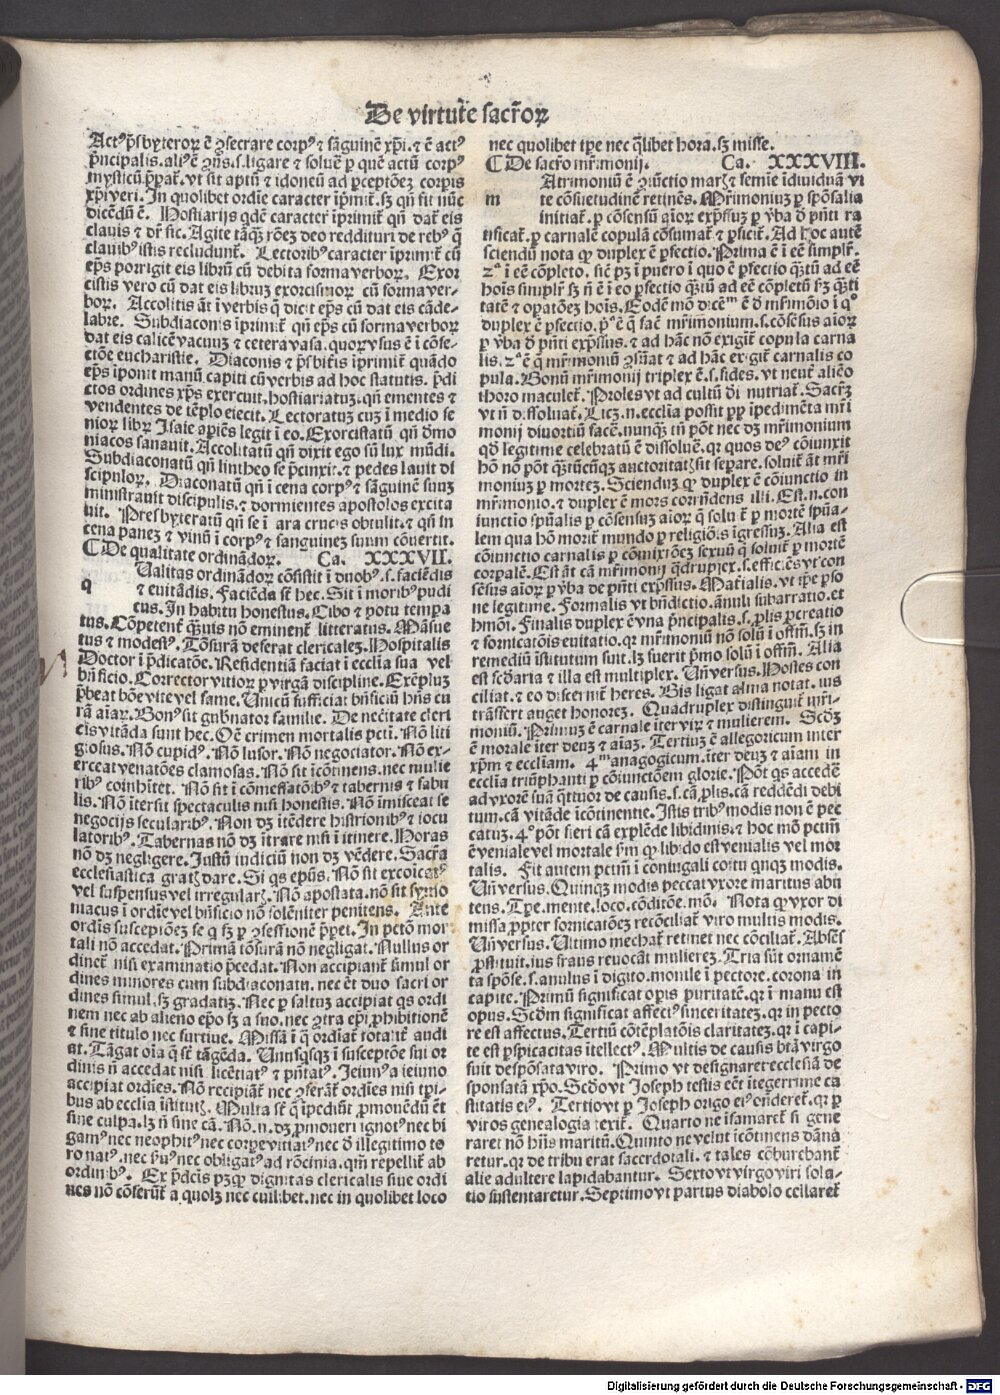 De virtute sacr̄oꝝ
Actꝰ p̄sbyteroꝝ ē ꝯsecrare corpꝰ ⁊ sāguinē xp̄i. ⁊ ē actꝰ
p̄ncipalis. aliꝰ ē ꝯ̄ns. s. ligare ⁊ soluē̄ p quē actū corpꝰ
mysticū p̄parat̄. vt sit aptū ⁊ idoneū ad ꝑceptōeꝫ corpis
xp̄i veri. In quolibet ordīe caracter īprimit̄. sꝫ qn̄ fit nūc
dicēdū ē. Hostiarijs qdē caracter īprimit̄ qn̄ dat̄ eis
clauis ⁊ dr̄ sic. Agite tāqꝫ rōeꝫ deo reddituri de rebꝰ q̄
clauibꝰ istis recludunt̄. Lectoribꝰ caracter īprimit̄ cū
ep̄s porrigit eis librū cū debita forma verboꝝ. Exor
cistis vero cū dat eis libruꝫ exorcismoꝝ cū forma ver-
boꝝ. Accolitis āt ī verbis q̄ dicit ep̄s cū dat eis cāde-
labre. Subdiaconis īprimit̄ qn̄ ep̄s cū forma verboꝝ
dat eis calicē vacuuꝫ ⁊ cetera vasa. quoꝝ vsus ē ī cōfe-
ctōe eucharistie. Diaconis ⁊ p̄sbit̄is īprimit̄ quādo
ep̄s īponit manū capiti cū verbis ad hoc statutis. p̄di
ctos ordines xp̄s exercuit. hostiariatuꝫ. qn̄ ementes ⁊
vendentes de tēplo eiecit. Lectoratuꝫ cuꝫ ī medio se
nioꝝ libꝝ Isaie apiēs legit ī eo. Exorcistatū qn̄ demo
niacos sanauit. Accolitatū qn̄ dixit ego sū lux mūdi.
Subdiaconatū qn̄ lintheo se p̄cinxit. ⁊ pedes lauit di
scipuloꝝ. Diaconatū qn̄ ī cena corpꝰ ⁊ sāguinē suuꝫ
ministrauit discipulis. ⁊ dormientes apostolos excita
uit. Presbyteratū qn̄ se ī ara crucis obtulit. ⁊ qn̄ in
cena paneꝫ ⁊ vinū ī corpꝰ ⁊ sanguineꝫ suum cōuertit.
De qualitate ordinādoꝝ. Ca. XXXVII.
q
Ualitas ordinādoꝝ cōsistit ī duobꝰ. s. faciēdis
⁊ euitādis. Faciēda sūt hec. Sit ī moribꝰ pudi
cus. In habitu honestus. Cibo ⁊ potu tempa
tus. Cōpetent̄ q̄uis nō eminent̄ litteratus. Māsue
tus ⁊ modestꝰ. Tōsurā deferat clericaleꝫ. Hospitalis
Doctor ī p̄dicatōe. Residentiā faciat ī ecclia sua vel
bn̄ficio. Corrector vitioꝝ p virgā discipline. Exēpluꝫ
p̄beat bōe vite vel fame. Unicū sufficiat bn̄ficiū hn̄s cu
rā aīaꝝ. Bonꝰ sit gubnator familie. De necitate cleri
eis vitāda sunt hec. Oē crimen mortalis pcti. Nō liti
giosus. Nō cupidꝰ. Nō lusor. Nō negociator. Nō ex-
erceat venatōes clamosas. Nō sit īcōtinens. nec mulie
ribꝰ coinhitet. Nō sit ī cōmessatōibꝰ ⁊ tabernis ⁊ fabu
lis. Nō ītersit spectaculis nisi honestis. Nō imisceat se
negocijs secularibꝰ. Non dꝫ itēdere histrionibꝰ ⁊ iocu
latoribꝰ. Tabernas nō dꝫ ītrare nisi ī itinere. Horas
nō dꝫ negligere. Justū iudiciū non dꝫ vēdere. Sacr̄a
ecclesiastica gratꝫ dare. Si qs epūs. Nō sit excōicatꝰ
vel suspensus vel irregularꝫ. Nō apostata. nō sit symo
niacus ī ordīe vel bn̄ficio nō solēniter penitens. Ante
ordīs susceptōeꝫ se q̄ sꝫ p ꝯfessionē p̄pet. In pctō mor
tali nō accedat. Primā tōsurā nō negligat. Nullus or
dinet̄ nisi examinatio p̄cedat. Non accipiant̄ simul or
dines minores cum subdiaconatu. nec ēt duo sacri or
dines simul. sꝫ gradatiꝫ. Nec p saltuꝫ accipiat qs ordi
nem nec ab alieno epō sꝫ a suo. nec ꝯtra epī ꝓhibitionē
⁊ sine titulo nec furtiue. Missā ī q̄ ordiat̄ totalit̄ audi
at. Tāgat oīa q̄ sūt tāgēda. Unusqsqꝫ ī susceptōe sui or
dinis n̄ accedat nisi licētiatꝰ ⁊ pūtatꝰ. Jeiunꝰ a ieiuno
accipiat ordīes. Nō recipiāt̄ nec ꝯferāt̄ ordīes nisi tpi-
bus ab ecclia īstitutꝫ. Multa sūt q̄ īpediūt̄ ꝓmouēdū ēt
sine culpa. lꝫ n̄ sine cā. Nō. n. dꝫ ꝓmoueri ignotꝰ nec bi
gamꝰ nec neophitꝰ nec corpe vitiatꝰ nec d̄ illegitimo to
ro natꝰ. nec suꝰ nec obligatꝰ ad rōcinia. qm̄ repellit̄ ab
ordībꝰ. Ex p̄dcis pꝫ qꝫ dignitas clericalis siue ordi
nes nō cōferūt̄ a quolꝫ nec cuilibet. nec in quolibet loco
nec quolibet tpe nec q̄libet hora. sꝫ misse.
De sacr̄o mr̄imonij. Ca. XXXVIII.
m
Atrimoniū ē ꝯiūctio marꝫ ⁊ femīe īdiuiduā vi
te cōsuetudinē retinēs. Mr̄imoniuꝫ p sponsalia
initiat̄. p cōsensū aīoꝝ exp̄ssuꝫ p v̄ba d̄ p̄nti ra
tificat̄. p carnalē copulā cōsumat̄ ⁊ ꝑficit̄. Ad hoc autē
sciendū nota q duplex ē ꝑfectio. Prima ē ī eē simplr̄.
2ᵃ ī eē cōpleto. sic pꝫ ī puero ī quo ē ꝑfectio q̄tū ad eē
hoīs simplr̄ sꝫ n̄ ē ī eo ꝑfectio q̄tū ad eē cōpletū sꝫ q̄ti
tatē ⁊ opatōeꝫ hoīs. Eodē mō dicēᵐ ē d̄ mr̄imōio ī qᵒ
duplex ē ꝑfectio. pᵃ ē q̄ facē mr̄imonium. s. cōsēsus aīoꝝ
p v̄ba d̄ p̄nti exp̄ssus. ⁊ ad hāc nō exigit̄ copula carna
lis. 2ᵃ ē q̄ mr̄imoniū ꝯsūat ⁊ ad hāc exigit̄ carnalis co
pula. Bonū mr̄imonij triplex ē. s. fides. vt neut̄ aliēo
thoro maculet̄. Proles vt ad cultū di nutriat̄. Sacr̄ꝫ
vt n̄ dissoluat̄. Licꝫ. n. ecclia possit pp īpedimēta mr̄i
monij diuortiū facē. nunqꝫ tn̄ pōt nec dꝫ mr̄imonium
qd legitime celebratū ē dissoluē. qr quos deꝰ cōiunxit
hō nō pōt q̄tūcūqꝫ auctoritatꝫ sit separe. soluit̄ āt mr̄i
moniuꝫ p morteꝫ. Sciendum q duplex ē cōiunctio in
mr̄imonio. ⁊ duplex ē mors corrn̄dens illi. Est. n. con
iunctio spūalis p cōsensuꝫ aīoꝝ q̄ soluit̄ p mortē spūa-
lem qua hō morit̄ mundo p religiōis īgressuꝫ. Alia est
cōiunctio carnalis p cōmixtiōeꝫ sexuū q̄ soluit̄ p mortē
corpalē. Est āt cā mr̄imonij q̄druplex. s. efficiēs vt con
sēsus aīoꝝ p v̄ba de p̄nti exp̄ssus. Mat̄ialis. vt ipē pso
ne legitime. Formalis vt bn̄dictio. ānuli subarratio. et
hmōi. Finalis duplex ē vna p̄ncipalis. s. ꝓlis ꝓcreatio
⁊ fornicatōis euitatio. qr mr̄imoniū nō solū ī offm̄. sꝫ in
remediū īstitutum sunt. lꝫ fuerit p̄mo solū ī offm̄. Alia
est scd̄aria ⁊ illa est multiplex. Un̄ versus. Hostes con
ciliat. ⁊ eo discernit̄ heres. Bis ligat alma notat. ius
trāsfert auget honoreꝫ. Quadruplex distinguit̄ mr̄i-
moniū. Primuꝫ ē carnale iter virꝫ ⁊ mulierem. Scd̄ꝫ
ē morale iter deuꝫ ⁊ aīaꝫ. Tertiuꝫ ē allegoricum inter
xp̄m ⁊ eccliam. 4ᵐ anagogicum. iter deuꝫ ⁊ aīam in
ecclia triūphanti p cōiunctōem glorie. Pōt qs accedē
ad vxorē suā q̄ttuor de causis. s. cā ꝓlis. cā reddēdi debi
tum. cā vitāde īcōtinentie. Istis tribꝰ modis non ē pec
catuꝫ. 4ᵒ pōt fieri cā explēde libidinis. ⁊ hoc mō pctm̄
ē veniale vel mortale sm̄ q libido est venialis vel mor
talis. Fit autem pctm̄ ī coniugali coitu qnqꝫ modis.
Un̄ versus. Quinqꝫ modis peccat vxore maritus abu
tens. Tpe. mente. loco. cōditōe. mō. Nota q vxor di
missa ꝓpter fornicatōeꝫ recōciliat̄ viro multis modis.
Un̄ versus. Ultimo mechat̄ retinet nec cōciliat̄. Absēs
ꝓstituit. ius fraus reuocāt muliereꝫ. Tria sūt ornamē
ta spōse. s. anulus ī digito. monile ī pectore. corona in
capite. Primū significat opis puritatē. qr ī manu est
opus. Scd̄m significat affectꝰ sinceritateꝫ. qr in pecto
re est affectus. Tertiū cōtēplatōis claritateꝫ. qr ī capi-
te est ꝑspicacitas ītellectꝰ. Multis de causis btā virgo
fuit despōsata viro. Primo vt designaret ecclesiā de
sponsatā xp̄o. Scd̄o vt Joseph testis eēt ītegerrime ca
stitatis eiꝰ. Tertio vt p Joseph origo eiꝰ ōnderet̄. qr p
viros genealogia texit̄. Quarto ne īfamaret̄ si gene
raret nō hn̄s maritū. Quinto ne velut īcōtinens dāna
retur. qr de tribu erat sacerdotali. ⁊ tales cōburebant̄
alie adultere lapidabantur. Sexto vt virgo viri sola-
tio sustentaretur. Septimo vt partus diabolo cellaret̄
Digitalisierung gefördert durch die Deutsche Forschungsgemeinschaft - DFG